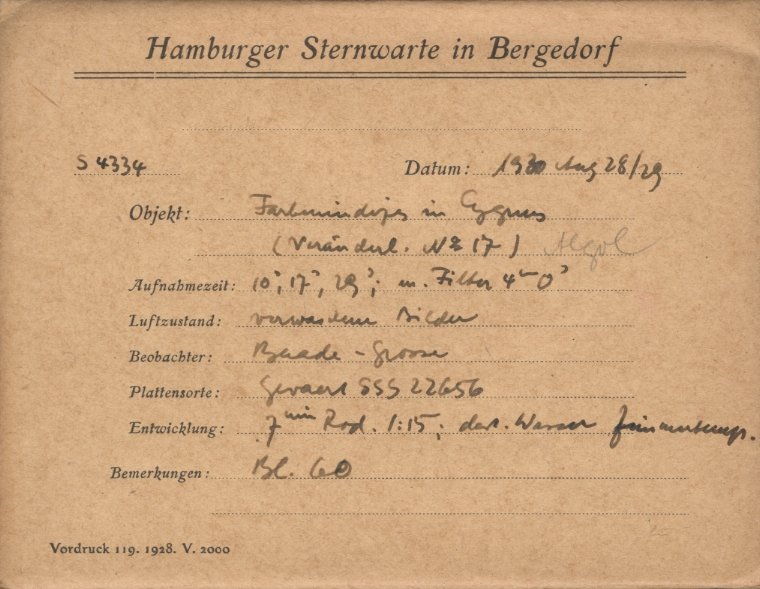 Hamburger Sternwarte in Bergedorf
S 4334 Datum: 1930 Aug 28/29
Objekt: Farbenindizes in Cygnus
(Veränderl. NZ 17) Algol
Aufnahmezeit: 10s, 17s, 29s; m. Filter 4m 0s
Luftzustand: verwaschene Bilder
Beobachter: Baade - Grosse
Plattensorte: Gevaert SSS 22656
Entwicklung: 7min Rod. 1:15; dest. Wasser Zimmertemp.
Bemerkungen: Bl. 60
Vordruck 119. 1928. V. 2000